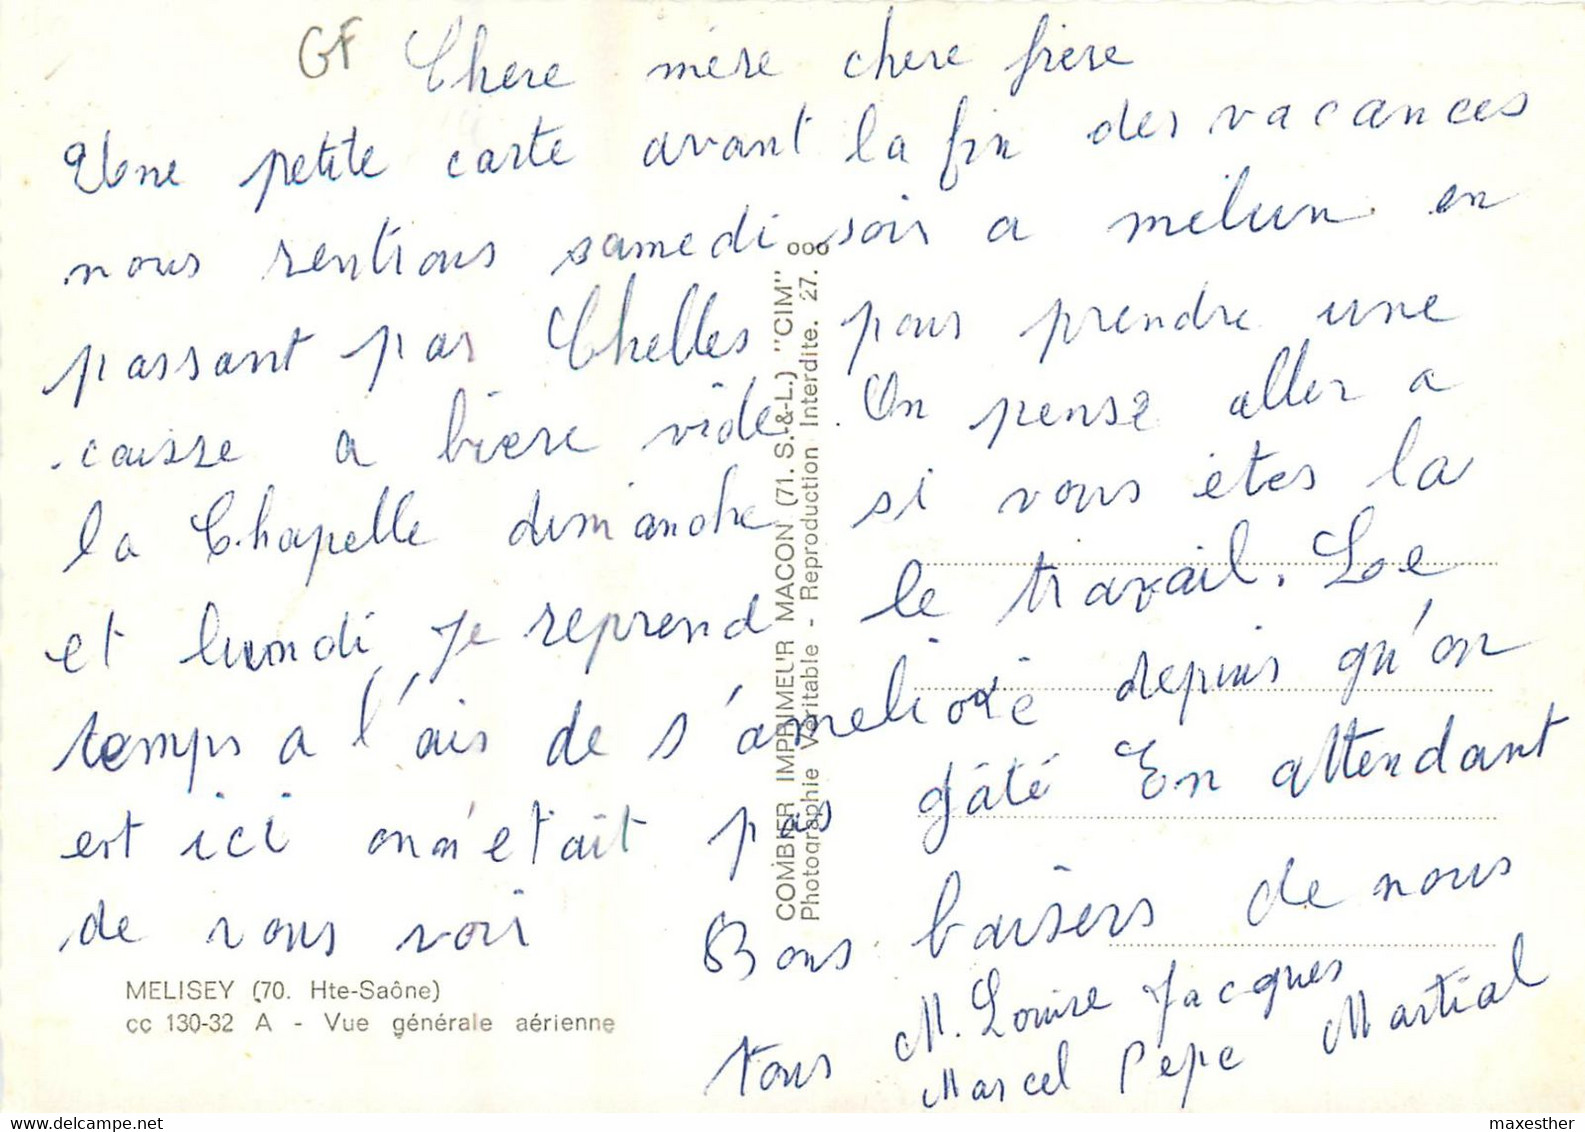 GF
Chere mère chere frère
Une petite carte avant la fin des vacances
nous rentrons samedi soir a melun en
passant par Chelles pour prendre une
caisse a bière vide. On pense aller a
la Chapelle dimanche si vous êtes la
et lundi je reprend le travail. Le
temps a l'air de s'améliorè depuis qu'on
est ici on n'etait pas gâté En attendant
de vous voir Bons baisers de nous
tous M. Louise Jacques
Marcel Pépé Martial
COMBIER IMPRIMEUR MACON (71. S.-&-L.) "CIM"
Photographie Véritable - Reproduction Interdite. 27. ooo
MELISEY (70. Hte-Saône)
cc 130-32 A - Vue générale aérienne
delcampe.net
maxesther